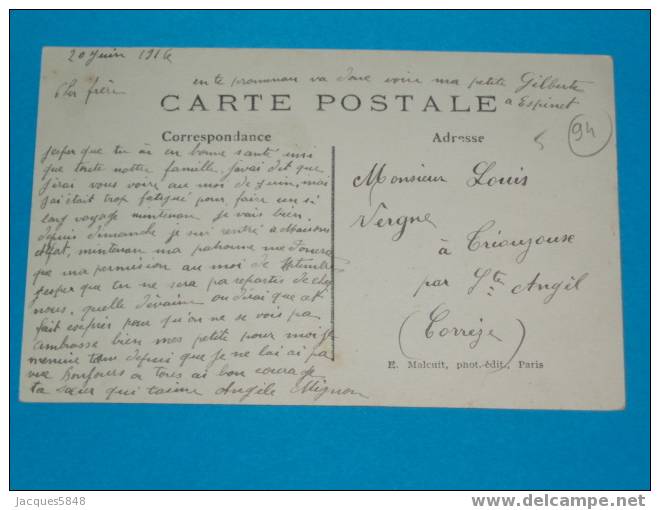 20 juin 1914
en te promenan va donc voire ma petite Gilberte
a Espinet
Cher frère
CARTE POSTALE
94
Correspondance
Adresse
jesper que tu ai en bonne santé insi
que toute notter famille javai dit que
jirai vous voire au moi de juin, mai
jai était trop fatigué pour faire un si
long voyage mintenan je vais bien.
depuis dimanche je sui rentré a Maisons
Alfort, mintenan ma patronne me donera
que ma permission au moi de septembre
jesper que tu ne sera pa repartis de chez
nous, quelle
fait exprès pour qu'on ne se vois pa
ambrasse bien mes petite pour moi je
tan depuis que je ne lai ai pa
vue Bonjours a tous ai bon courage
ta sœur qui taime Angèle Mignon
Monsieur Louis
Vergne
à Triouzouse
par Ste Angil
(Corrèze)
E. Malcuit, phot.-édit., Paris
Jacques5848
delcampe.net